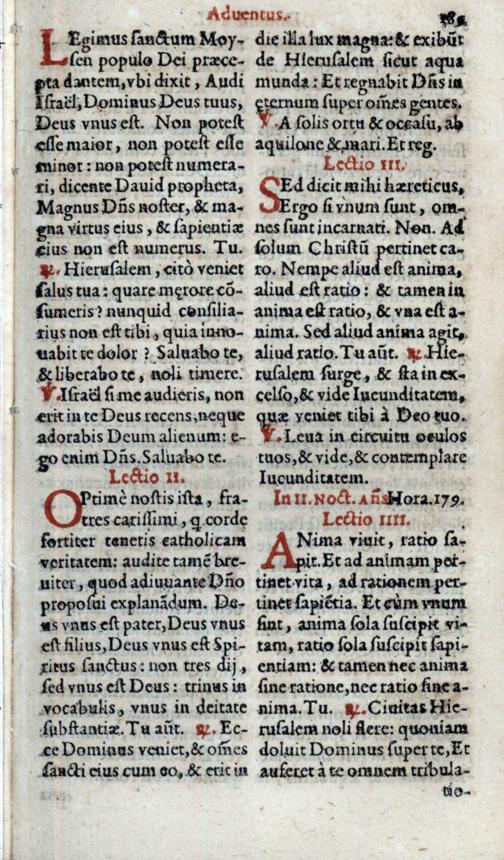 Aduentus.
LEgimus sanctum Moy-
sen populo Dei præce-
pta dantem, vbi dixit, Audi
Israël, Dominus Deus tuus,
Deus vnus est. Non potest
esse maior, non potest esse
minor: non potest numera-
ri, dicente Dauid propheta,
Magnus Dñs noster, & ma-
gna virtus eius, & sapientiæ
eius non est numerus. Tu.
℟. Hierusalem, citò veniet
salus tua: quare męrore cõ-
sumeris? nunquid consilia-
rius non est tibi, quia inno-
uabit te dolor? Saluabo te,
& liberabo te, noli timere.
℣. Israël si me audieris, non
erit in te Deus recens, neque
adorabis Deum alienum: e-
go enim Dñs. Saluabo te.
Lectio II.
OPtimè nostis ista, fra-
tres carissimi, q corde
fortiter tenetis catholicam
veritatem: audite tamẽ bre-
uiter, quod adiuuante Dño
proposui explanãdum. De-
us vnus est pater, Deus vnus
est filius, Deus vnus est Spi-
ritus sanctus: non tres dij,
sed vnus est Deus: trinus in
vocabulis, vnus in deitate
substantiæ. Tu aũt. ℟. Ec-
ce Dominus veniet, & om̃es
sancti eius cum eo, & erit in
die illa lux magna: & exibũt
de Hierusalem sicut aqua
munda: Et regnabit Dñs in
ęternum super om̃es gentes.
℣. A solis ortu & occasu, ab
aquilone & mari. Et reg.
Lectio III.
SEd dicit mihi hæreticus,
Ergo si vnum sunt, om-
nes sunt incarnati. Non. Ad
solum Christũ pertinet ca-
ro. Nempe aliud est anima,
aliud est ratio: & tamen in
anima est ratio, & vna est a-
nima. Sed aliud anima agit,
aliud ratio. Tu aũt. ℟. Hie-
rusalem surge, & sta in ex-
celso, & vide Iucunditatem,
quæ veniet tibi à Deo tuo.
℣. Leua in circuitu oculos
tuos, & vide, & contemplare
Iucunditatem.
In II. Noct. Añs Hora. 179.
Lectio IIII.
ANima viuit, ratio sa-
pit. Et ad animam per-
tinet vita, ad rationem per-
tinet sapiẽtia. Et cùm vnum
sint, anima sola suscipit vi-
tam, ratio sola suscipit sapi-
entiam: & tamen nec anima
sine ratione, nec ratio sine a-
nima. Tu. ℟. Ciuitas Hie-
rusalem noli flere: quoniam
doluit Dominus super te, Et
auferet à te omnem tribula-
tio-